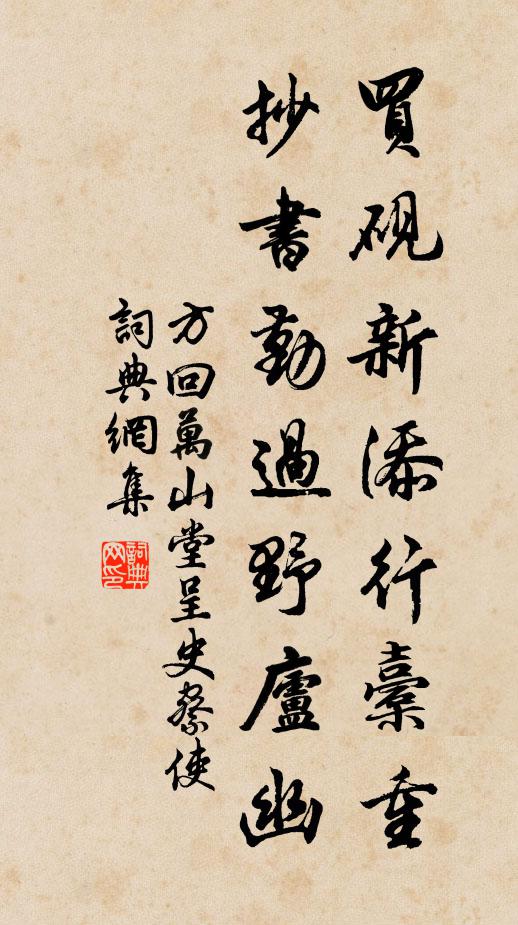 買硯新添行橐重
抄書勤過野廬幽
方回萬山堂呈史察使
詞典網集
詞典網印